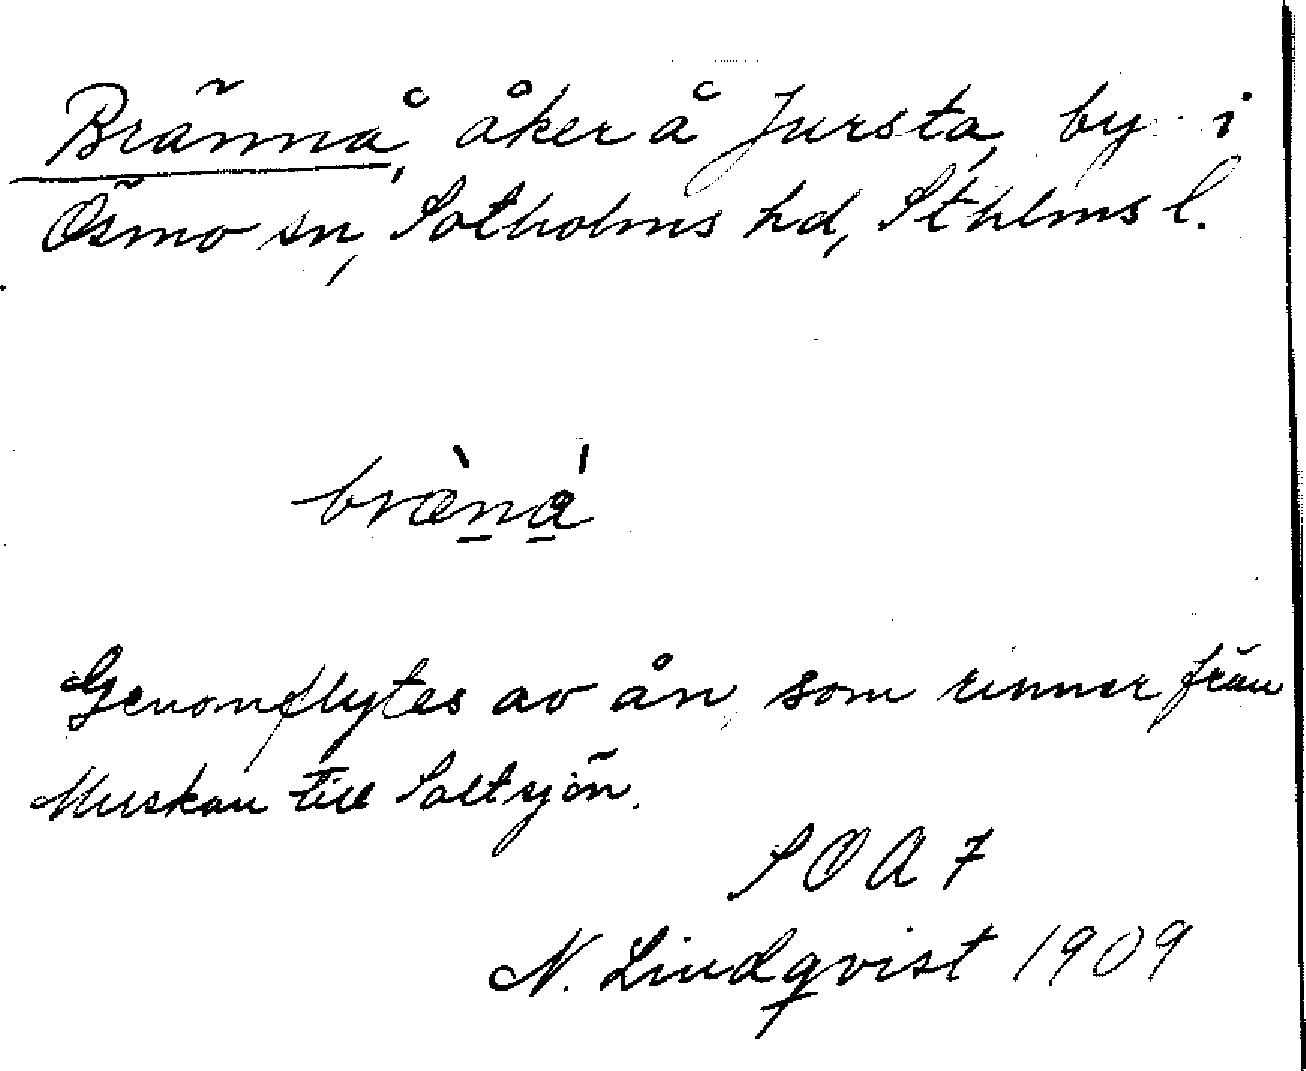 Brännå, åker å Jursta, by i
Ösmo sn, Sotholms hd, Sthlms l.
bræ̀ná
Genomflytes av ån, som rinner från
Muskan till Saltsjön.
SOA 7
N. Lindqvist 1909